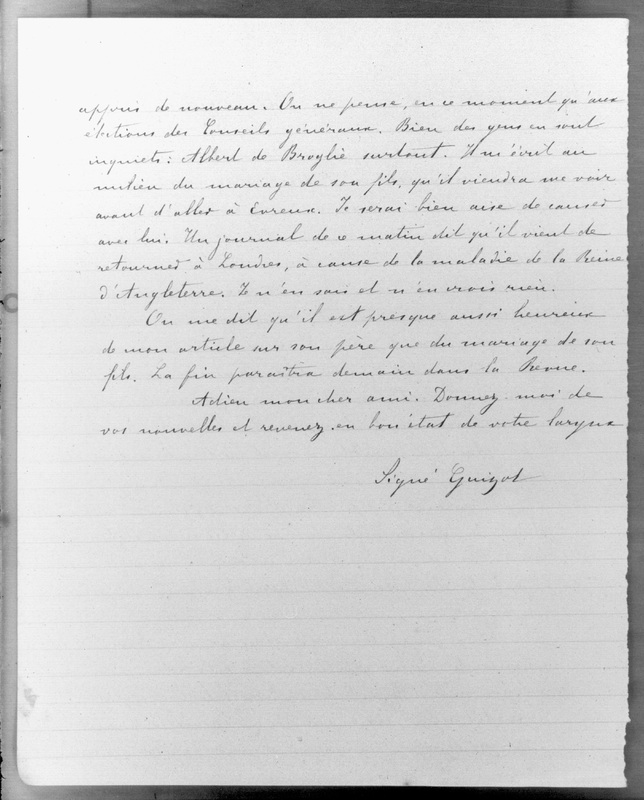 appris de nouveau. On ne pense, en ce moment qu'aux
élections des Conseils généraux. Bien des gens en sont
inquiets: Albert de Broglie surtout. Il m'écrit au
milieu du mariage de son fils, qu'il viendra me voir
avant d'aller à Evreux. Je serai bien aise de causer
avec lui. Un journal de ce matin dit qu'il vient de
retourner à Londres, à cause de la maladie de la Reine
d'Angleterre. Je n'en sais et n'en crois rien.
On me dit qu'il est presque aussi heureux
de mon article sur son père que du mariage de son
fils. La fin paraîtra demain dans la Revue.
Adieu mon cher ami. Donnez-moi de
vos nouvelles et revenez en bon état de votre larynx
Signé Guizot